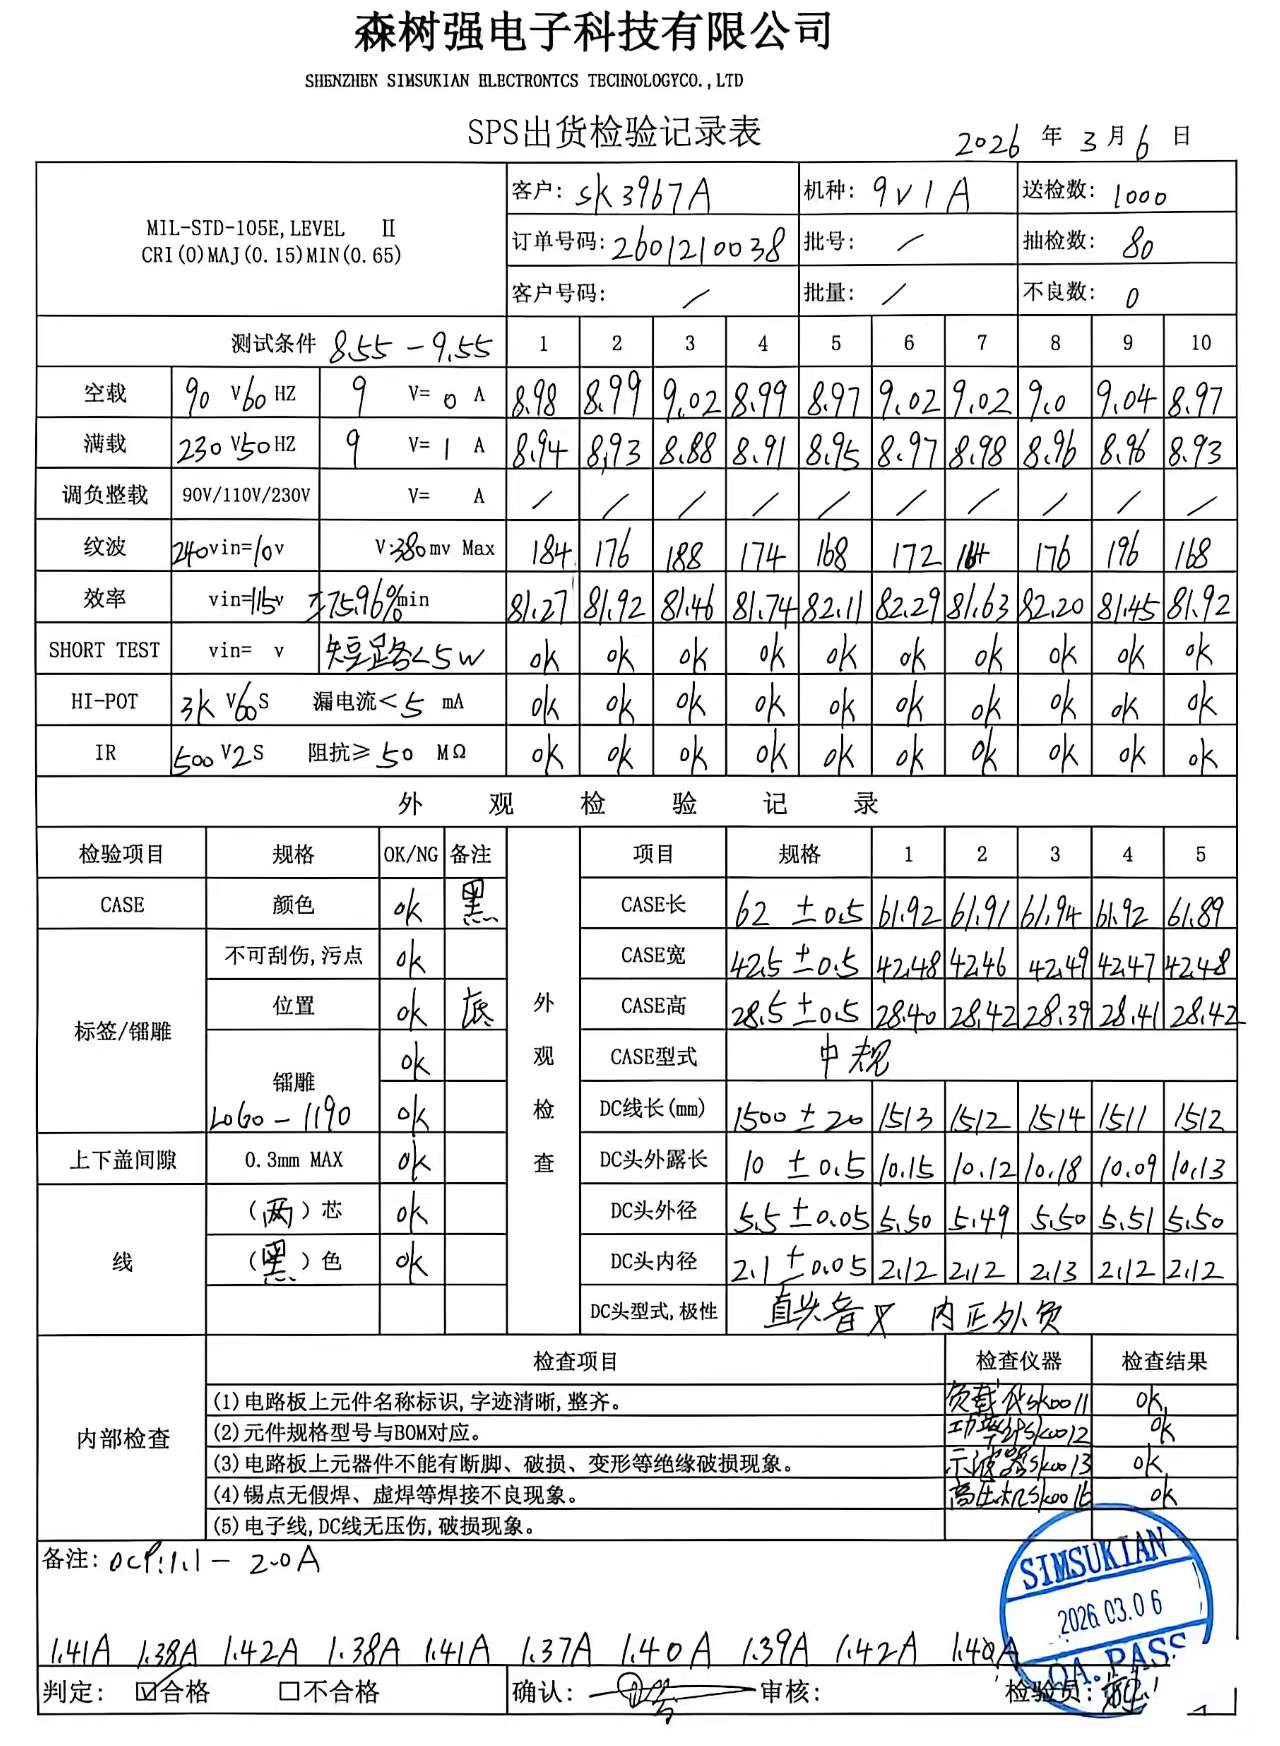 森树强电子科技有限公司
SHENZHEN SIMSUKIAN ELECTRONTCS TECHNOLOGYCO.,LTD
SPS出货检验记录表
2026 年 3 月 6 日
MIL-STD-105E,LEVEL Ⅱ
CRI(0)MAJ(0.15)MIN(0.65)
客户: SK3967A 机种: 9V1A 送检数: 1000
订单号码: 2601210038 批号: / 抽检数: 80
客户号码: / 批量: / 不良数: 0
测试条件 8.55-9.55 1 2 3 4 5 6 7 8 9 10
空载 90 V 60 HZ 9 V= 0 A 8.98 8.99 9.02 8.99 8.97 9.02 9.02 9.0 9.04 8.97
满载 230 V 50 HZ 9 V= 1 A 8.94 8.93 8.88 8.91 8.95 8.97 8.98 8.96 8.96 8.93
调负整载 90V/110V/230V V= A / / / / / / / / / /
纹波 240vin=10v V:380mv Max 184 176 188 174 168 172 164 176 196 168
效率 vin=115v 75.96%min 81.27 81.92 81.46 81.74 82.11 82.29 81.63 82.20 81.45 81.92
SHORT TEST vin= v 短路<5W ok ok ok ok ok ok ok ok ok ok
HI-POT 3K V 60 S 漏电流< 5 mA ok ok ok ok ok ok ok ok ok ok
IR 500 V 2 S 阻抗≥ 50 MΩ ok ok ok ok ok ok ok ok ok ok
外观检验记录
检验项目 规格 OK/NG 备注 外观检查 项目 规格 1 2 3 4 5
CASE 颜色 ok 黑 CASE长 62 ±0.5 61.92 61.91 61.94 61.92 61.89
标签/镭雕 不可刮伤,污点 ok CASE宽 42.5 ±0.5 42.48 42.46 42.49 42.47 42.48
位置 ok 底 CASE高 28.5 ±0.5 28.40 28.42 28.39 28.41 28.42
镭雕 ok CASE型式 中规
LOGO-1190 ok DC线长(mm) 1500 ±20 1513 1512 1514 1511 1512
上下盖间隙 0.3mm MAX ok DC头外露长 10 ±0.5 10.15 10.12 10.18 10.09 10.13
线 (两)芯 ok DC头外径 5.5 ±0.05 5.50 5.49 5.50 5.51 5.50
(黑)色 ok DC头内径 2.1 ±0.05 2.12 2.12 2.13 2.12 2.12
DC头型式,极性 直头音叉 内正外负
内部检查 检查项目 检查仪器 检查结果
(1)电路板上元件名称标识,字迹清晰,整齐。 负载仪SK0011 ok
(2)元件规格型号与BOM对应。 SK0012 ok
(3)电路板上元器件不能有断脚、破损、变形等绝缘破损现象。 示波器SK0013 ok
(4)锡点无假焊、虚焊等焊接不良现象。 高压机SK0015 ok
(5)电子线,DC线无压伤,破损现象。
备注: OCP:1.1-2.0A
SIMSUKIAN
2026.03.06
QA.PASS
1.41A 1.38A 1.42A 1.38A 1.41A 1.37A 1.40A 1.39A 1.42A 1.40A
判定: ☑合格 □不合格 确认: 审核: 检验员: